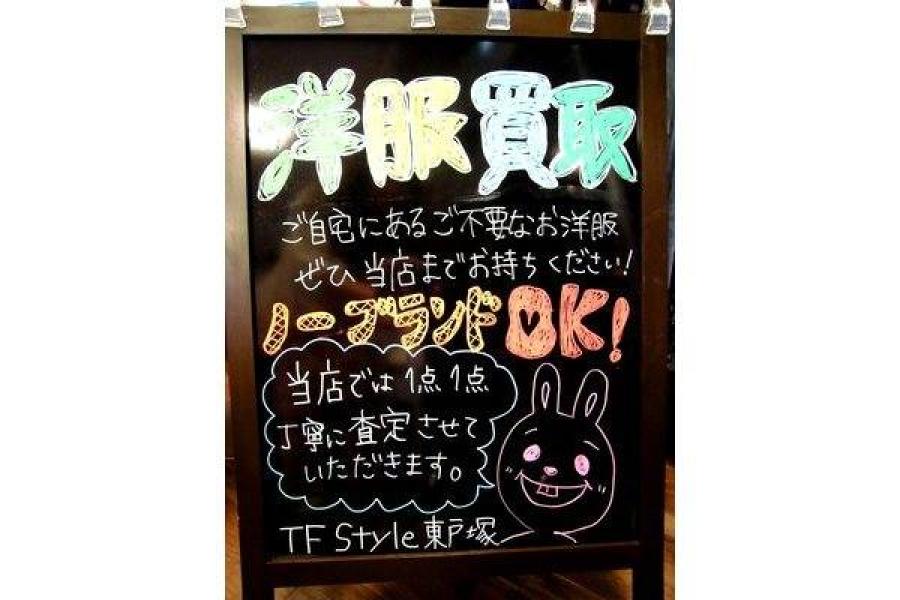 洋服買取
ご自宅にあるご不要なお洋服
ぜひ当店までお持ちください!
ノーブランドOK!
当店では1点1点
丁寧に査定させて
いただきます。
TF Style東戸塚